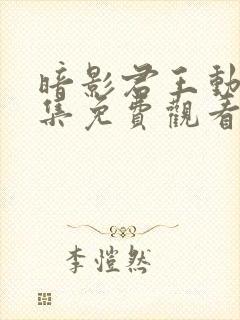 暗影君王動
集免費觀看
李愷然